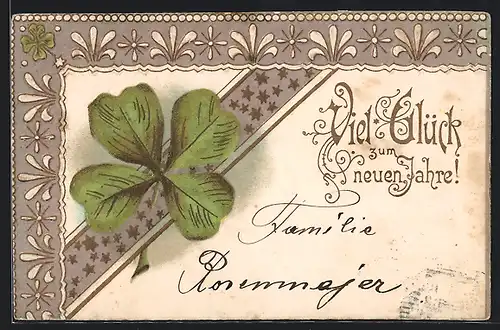 Viel Glück
zum
neuen Jahre!
Familie
Rosenmajer.